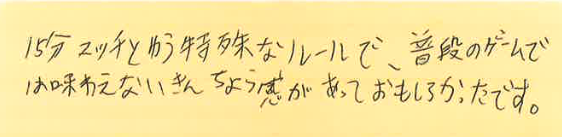 15分マッチという特殊なルールで、普段のゲームで
は味わえないきんちょう感があっておもしろかったです。